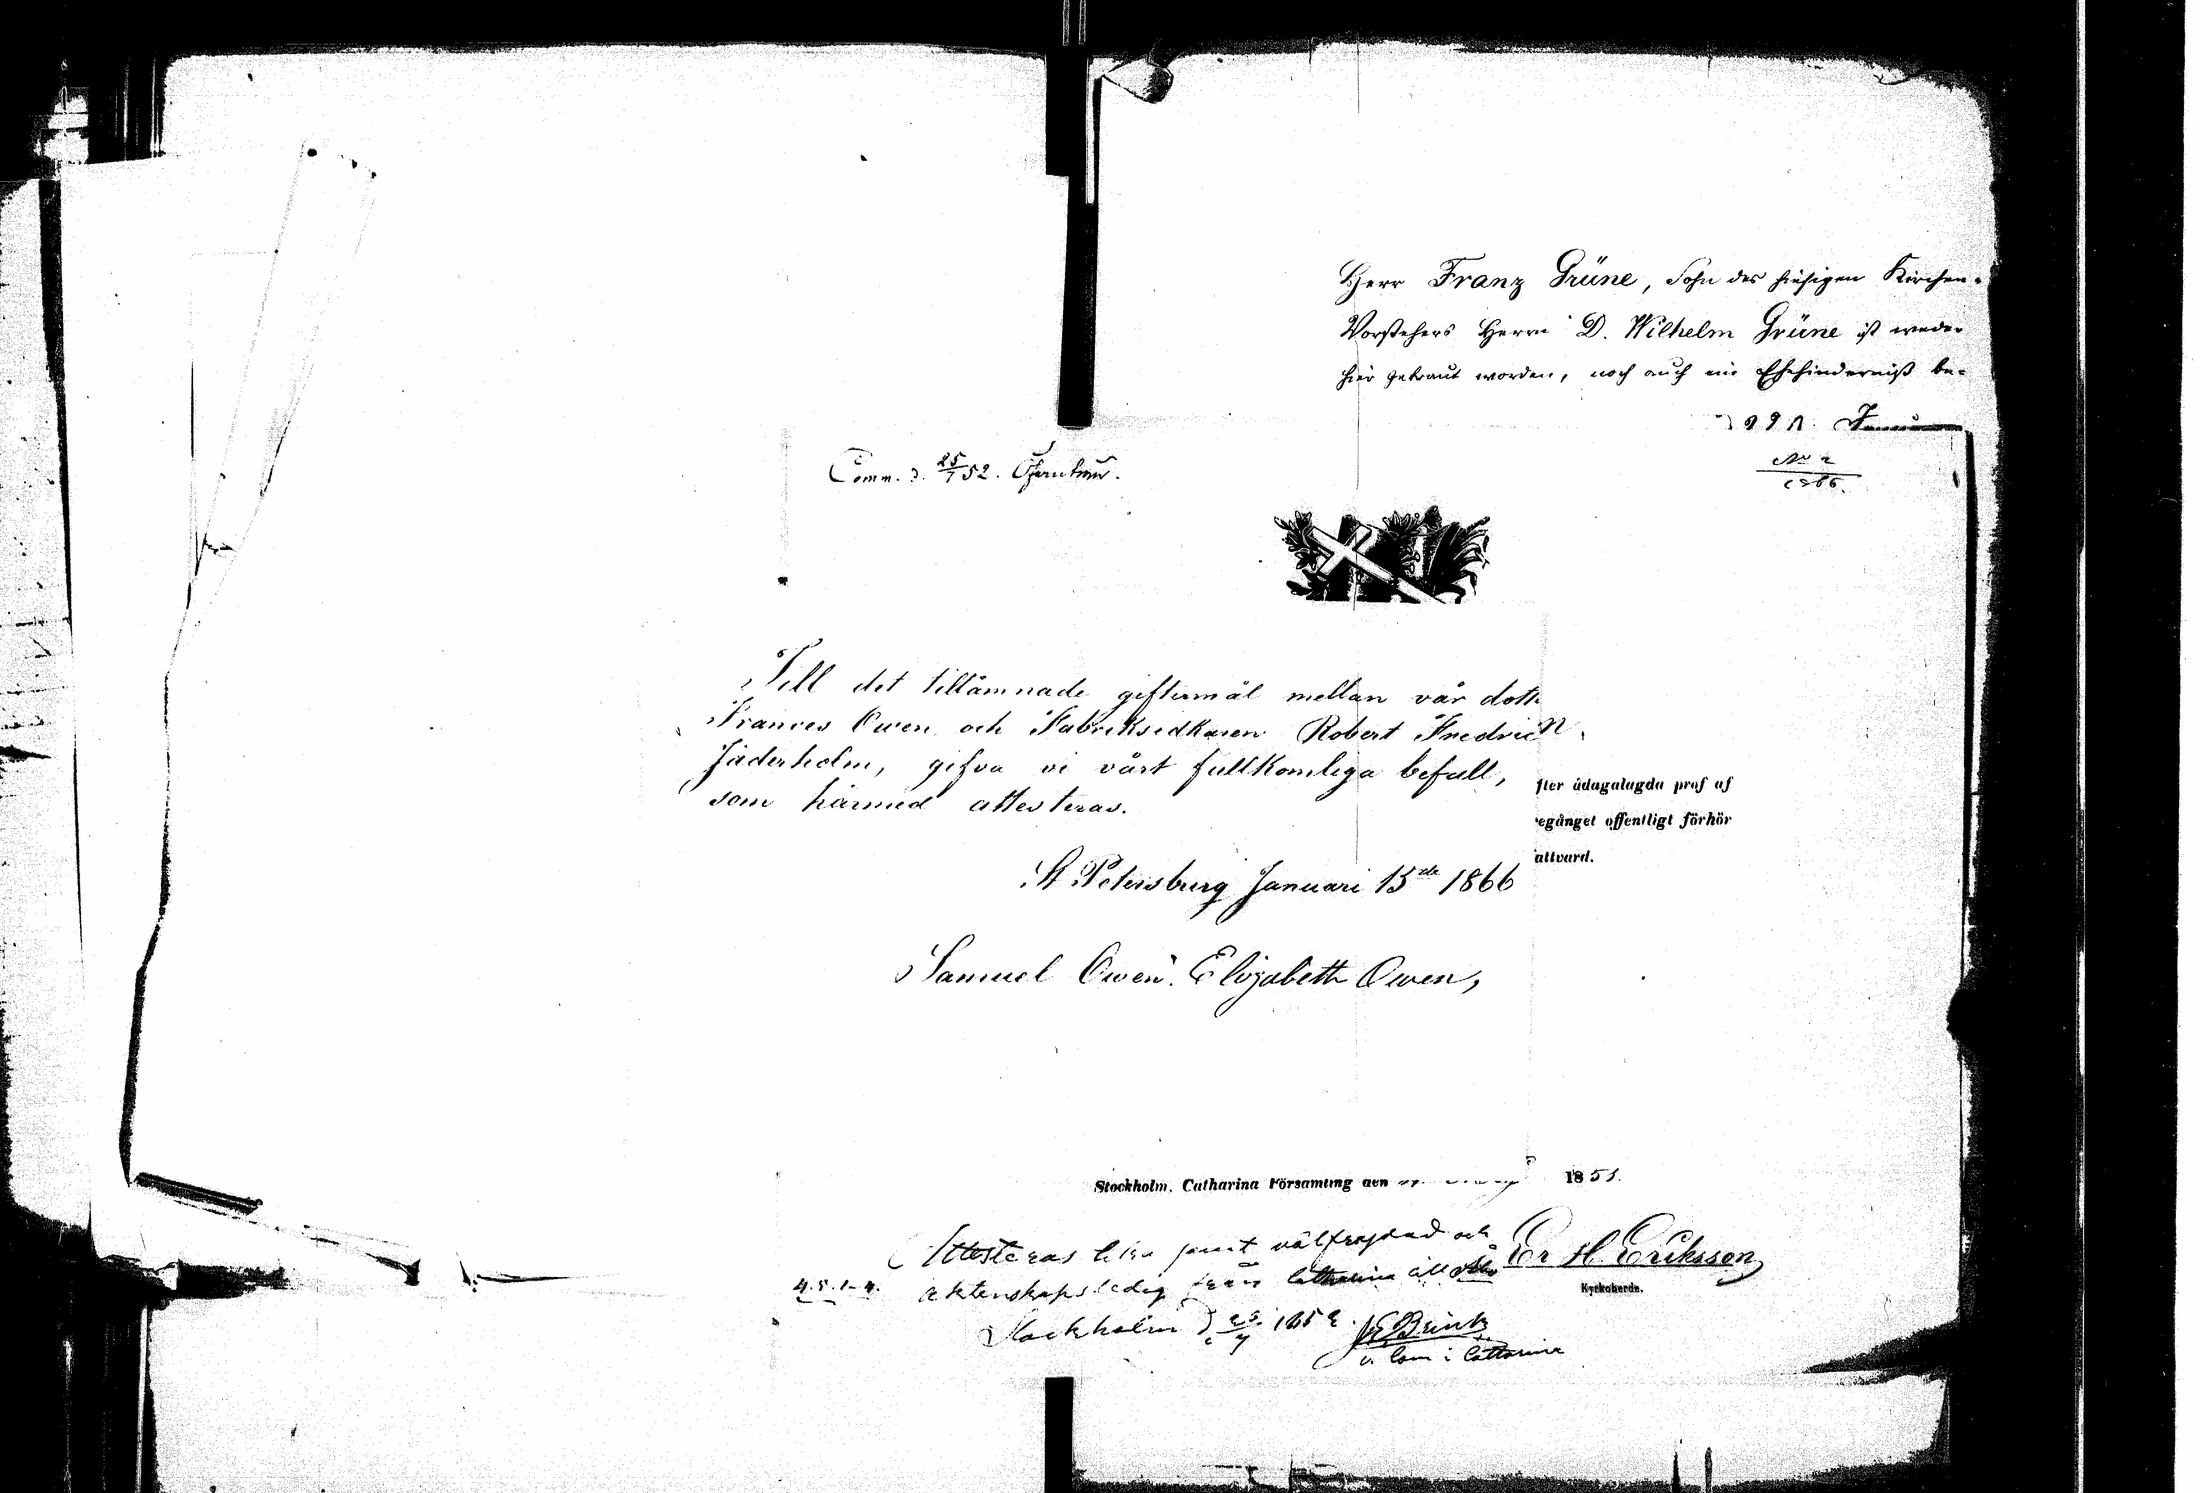 Herr Franz Grüne, Sohn des hiesigen Kirchen-
Vorstehers Herrn D. Wilhelm Grüne ist weder
hier getraut worden, noch auch ein Ehehinderniß be-
No 2
1866.
Comm. d. 25/7 52.
Till det tillämnade giftermål mellan vår dott
Frances Owen och Fabriksidkaren Robert Fredrick
Jäderholm, gifva vi vårt fullkomliga bifall,
som härmed attesteras.
fter ådagalagda prof af
egånget offentligt förhör
attvard.
St Petersburg Januari 15de 1866
Samuel Owen. Elizabeth Owen,
Stockholm, Catharina Församling den 1851.
Attesteras lika samt välfrejdad och
äktenskapsledig från Catharina till
Er H. Eriksson
Kyrkoherde.
4. 5. 1-4.
Stockholm d 25/7 1852.
v. Com i Catharina